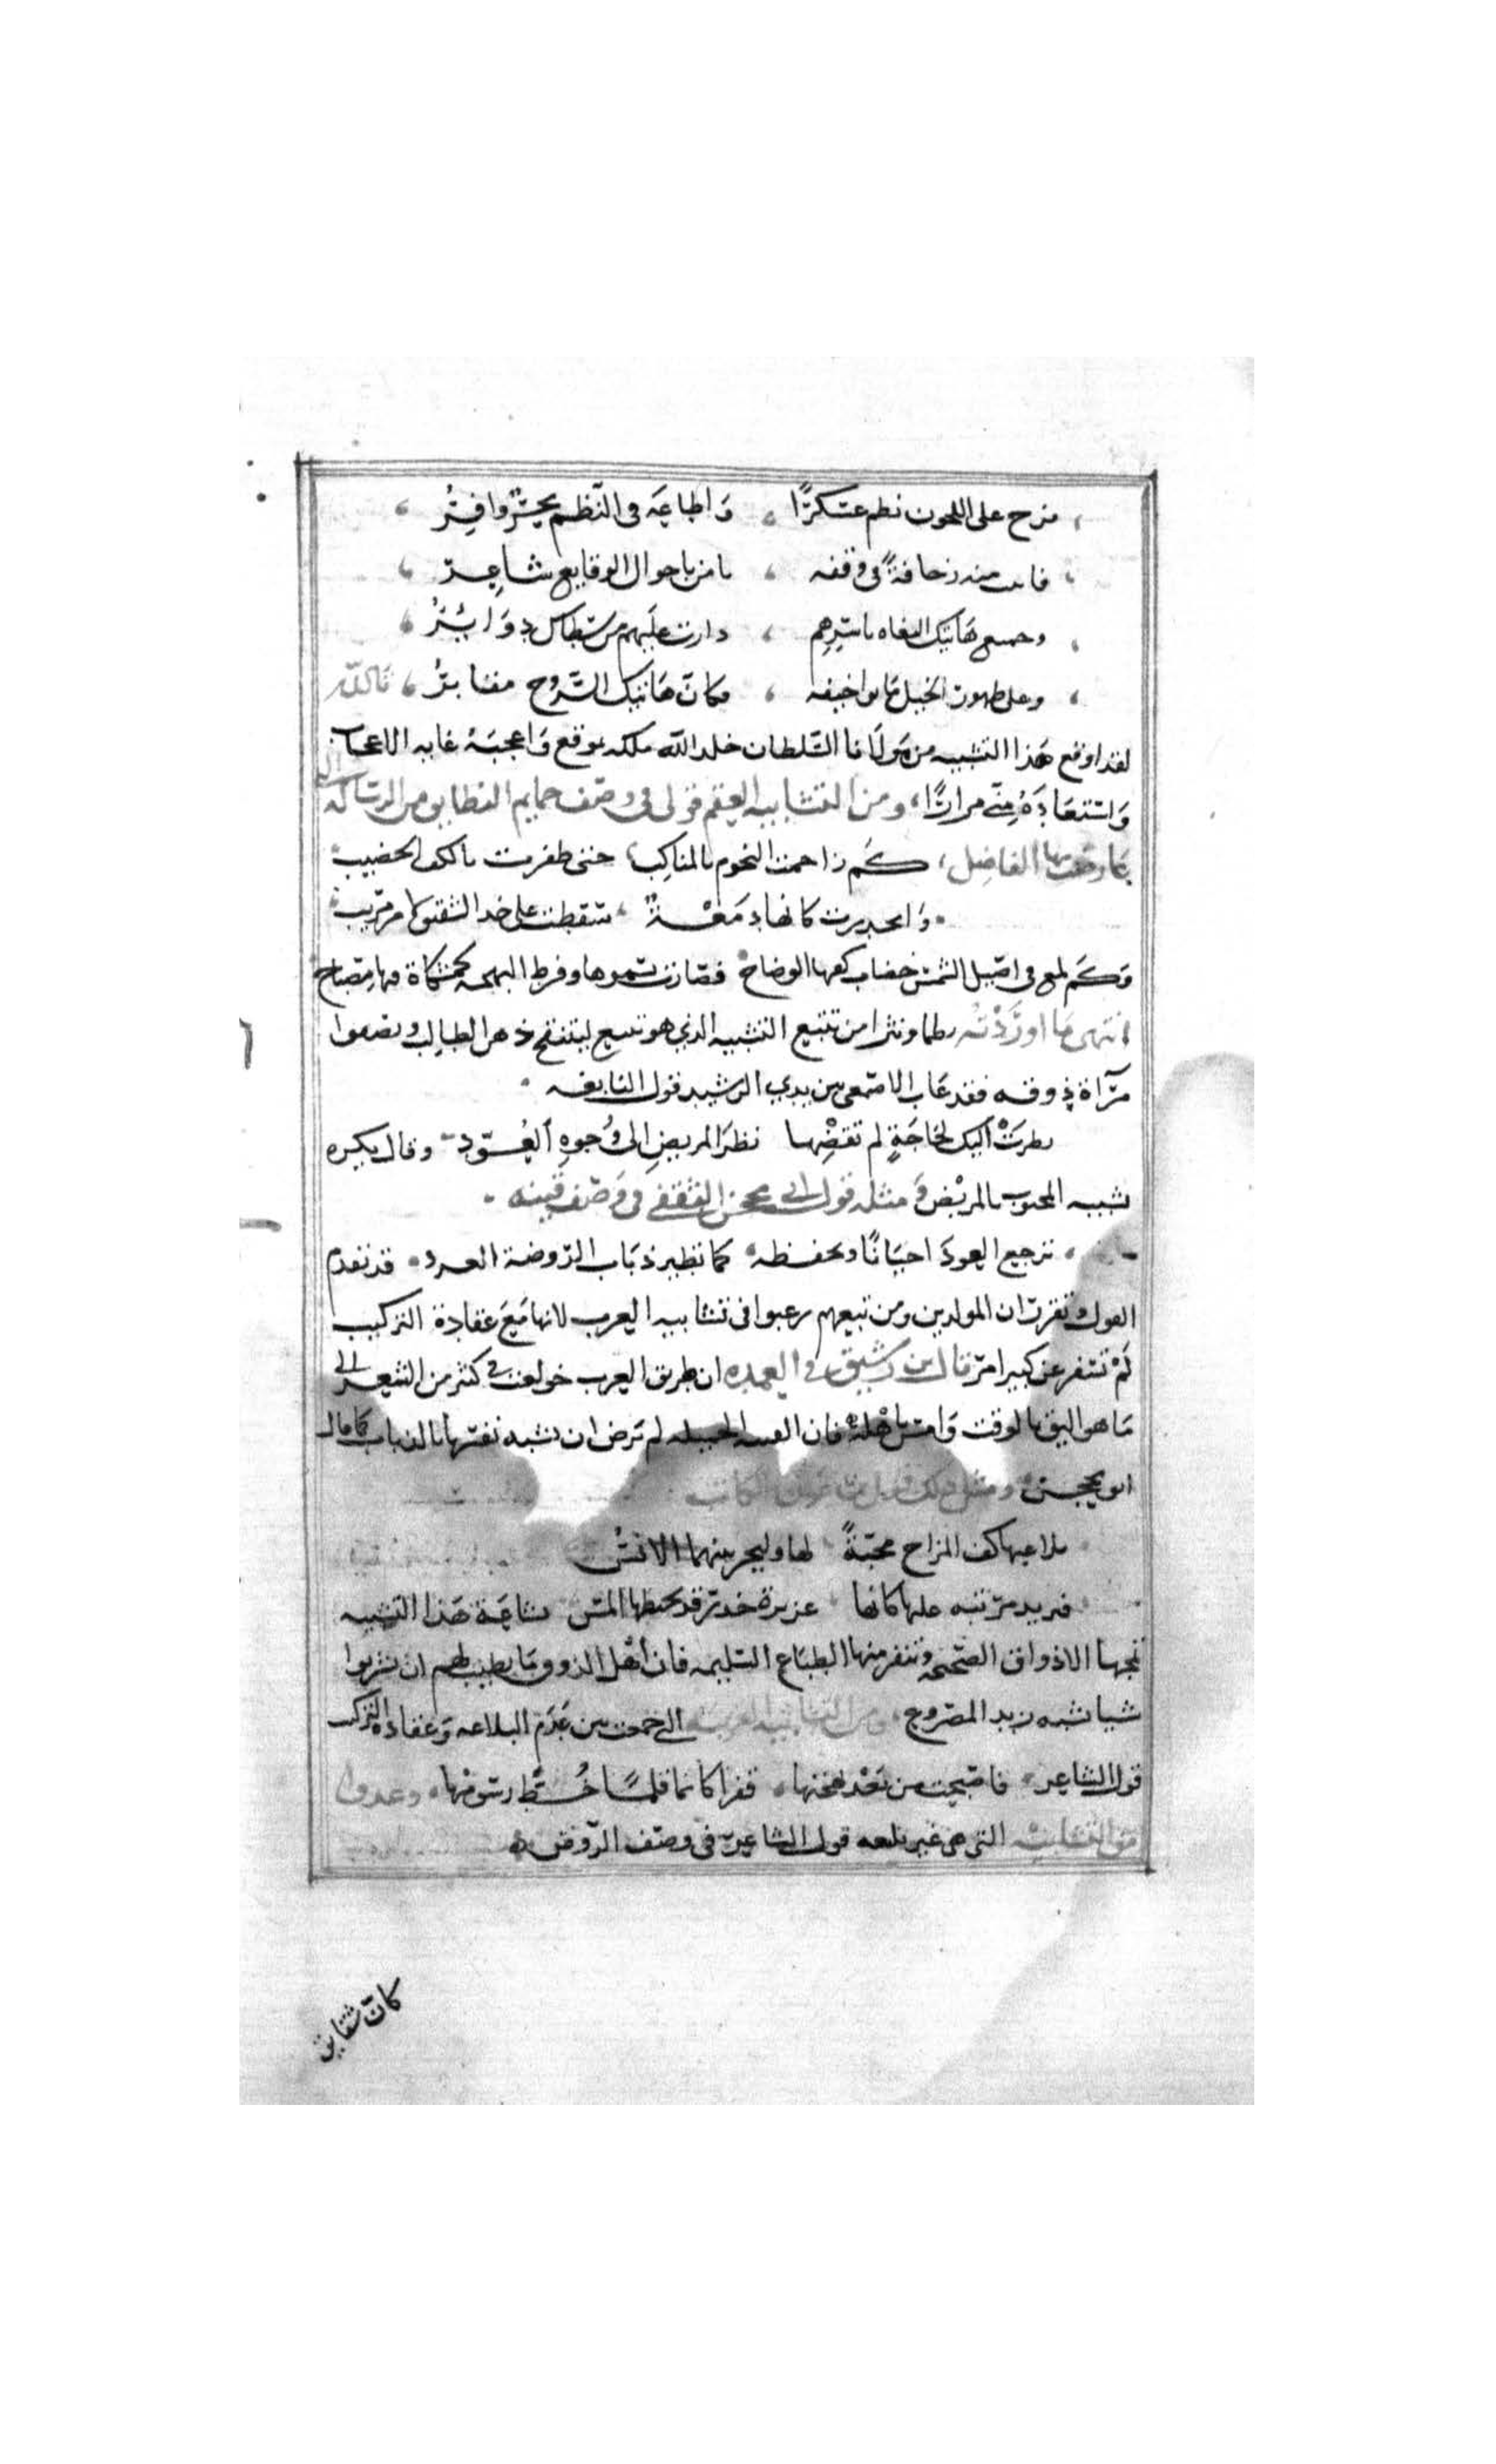 نرح على اللجون نظم عسكرًا ، وَاطاعَه فى النّظم بحرٌ وافِرُ ،
فاىت منه زحافةً فى وقفه ، يا من باحوال الوقايع شاعِرُ ،
وجميع هَاتيك البغاه باسْرِهِم ، دارت عليهم من سطاك دوَائرُ ،
وعلى ظهور الخيل مَاتوا خيفه ، فكانّ هَاتيك السّروج مقابرُ ، تَالله
لقد اوقع هَذا التشبيه من مَولَانا السّلطان خلد الله ملكه بموقع وَاعجبَهُ غايه الاعجاب
وَاستعَادَهُ منّى مرارًا ، ومن التشابيه العقم قولى فى وصْف حمايم البطايق من الرسَاله التى
عَارضْت بها الفاضِل ، كَم زاحمت النجوم بالمناكب ، حتى ظفرت بالكف الخضيب
وَانحدرت كانها دمَعْةٌ ، سَقطت على خد الشفق لامر مُريب
وَكَم لمع فى اصيل الشمس خضاب كفها الوضاح ، فصَارت بسموها وفرط البهجه كمشكاة فيها مصْبَاح
انتهى مَا اوردْتُه نظما ونثرا من تتبع التشبيه الذى هو بديع ليتنقح ذهن الطالب وتصفوا
مرْآة ذوقه فقد عَاب الاصْمعى بين يدى الرشيد قول النابغه
نظرَتْ اليك لحَاجَةٍ لم تقضْها نظَرَ المريضِ الى وُجوهِ العُوّدِ وقال يكره
تشبيه المحبوب بالمريْض وَمثله قول ابى محجن الثقفى فى وَصْف قينه
ترجيع العودَ احيَانًا وتخفضه ، كما يطير ذبَاب الرّوضة الغرد ، قد تقدم
القول وتقرر ان المولدين ومن تبعهم رغبوا فى تشابيه العرب لانها مَعَ عقادة التركيب
لَمْ تسْفر عن كبير امرٍ قال ابن رشيق فى العمده ان طريق العرب خولفت فى كثر من الشعر الى
مَا هو اليق بالوقت وَامسّ باهْلِهِ فان القينه الجميله لم ترض ان تشبه نفسَها بالذباب كَما قال
ابو محجن ومثل ذلك قول بن عون الكاتب
يلاعبها كف المزاج محبّةً لها وليجر بينهما الانسُ
فتزبد من تيه عليها كانها عزيزة خدر قد تخبطها المسّ بشاعَة هَذا التشبيه
تمجها الاذواق الصّحيحه وتنفر منها الطباع السّليمه فان اهْل الذوق مَا يطيب لهم ان يشربوا
شيا شبه بزبد المصْروع ، ومن التشابيه الغريبه التى جمعت بين عَدَم البلاغه وَعقادة التركيب
قول الشاعر ، فاصْبحت من بَعْد بهجتها ، قفرا كانما قلمًا خُطّ رسومْها ، وعدوا
من التشابيْه التى هى غير بليغه قول الشاعر فى وصْف الرّوض
كانّ شقايق